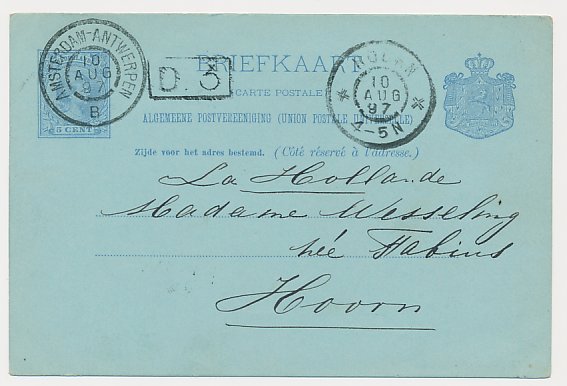 AMSTERDAM-ANTWERPEN
10
AUG
97
B
5 CENT
D. 3
BRIEFKAART
(CARTE POSTALE)
ALGEMEENE POSTVEREENIGING (UNION POSTALE UNIVERSELLE)
Zijde voor het adres bestemd. (Côté réservé à l'adresse.)
10
AUG
97
4-5N
La Hollande
Madame Wesseling
née Fabius
Hoorn